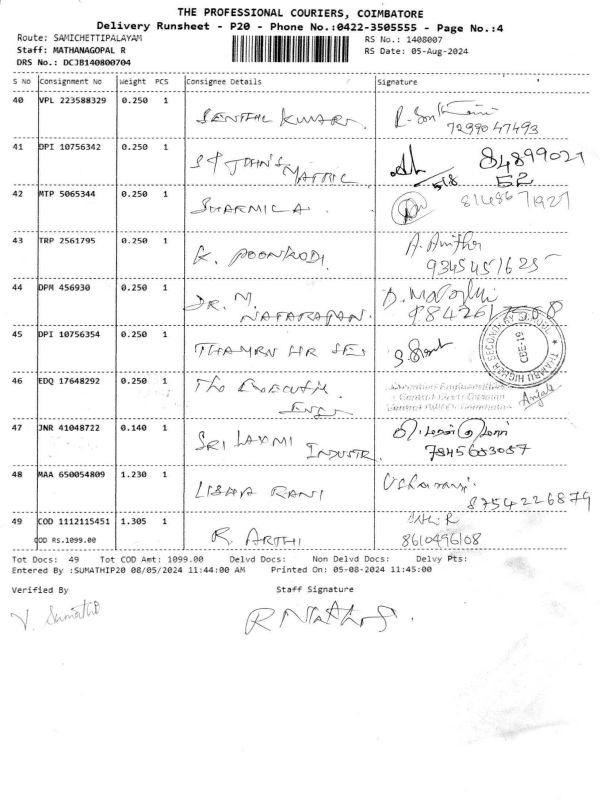 THE PROFESSIONAL COURIERS, COIMBATORE
Delivery Runsheet - P20 - Phone No.:0422-3505555 - Page No.:4
Route: SAMICHETTIPALAYAM RS No.: 1408007
Staff: MATHANAGOPAL R RS Date: 05-Aug-2024
DRS No.: DCJB140800704
S No Consignment No Weight PCS Consignee Details Signature
40 VPL 223588329 0.250 1
SENTHIL KUMAR. R.
7299047493
41 DPI 10756342 0.250 1
ST JOHN'S MATRIC 84899021
5/8 52
42 MTP 5065344 0.250 1
SHARMILA. 8148671927
43 TRP 2561795 0.250 1
K. POONKODI. A. Anitha
9345451625
44 DPM 456930 0.250 1
DR. M. NATARAJAN.
45 DPI 10756354 0.250 1
THAMRU HR SEC
THAMBU HIGHER SECONDARY SCHOOL
CBE-19
46 EDQ 17648292 0.250 1
The Executive Engr
47 JNR 41048722 0.140 1
SRI LAXMI INDUSTR.
7845653057
48 MAA 650054809 1.230 1
LISHA RANI
8754226879
49 COD 1112115451 1.305 1
COD RS.1099.00
R. ARTHI
8610496108
Tot Docs: 49 Tot COD Amt: 1099.00 Delvd Docs: Non Delvd Docs: Delvy Pts:
Entered By :SUMATHIP20 08/05/2024 11:44:00 AM Printed On: 05-08-2024 11:45:00
Verified By Staff Signature
V. Sumathi